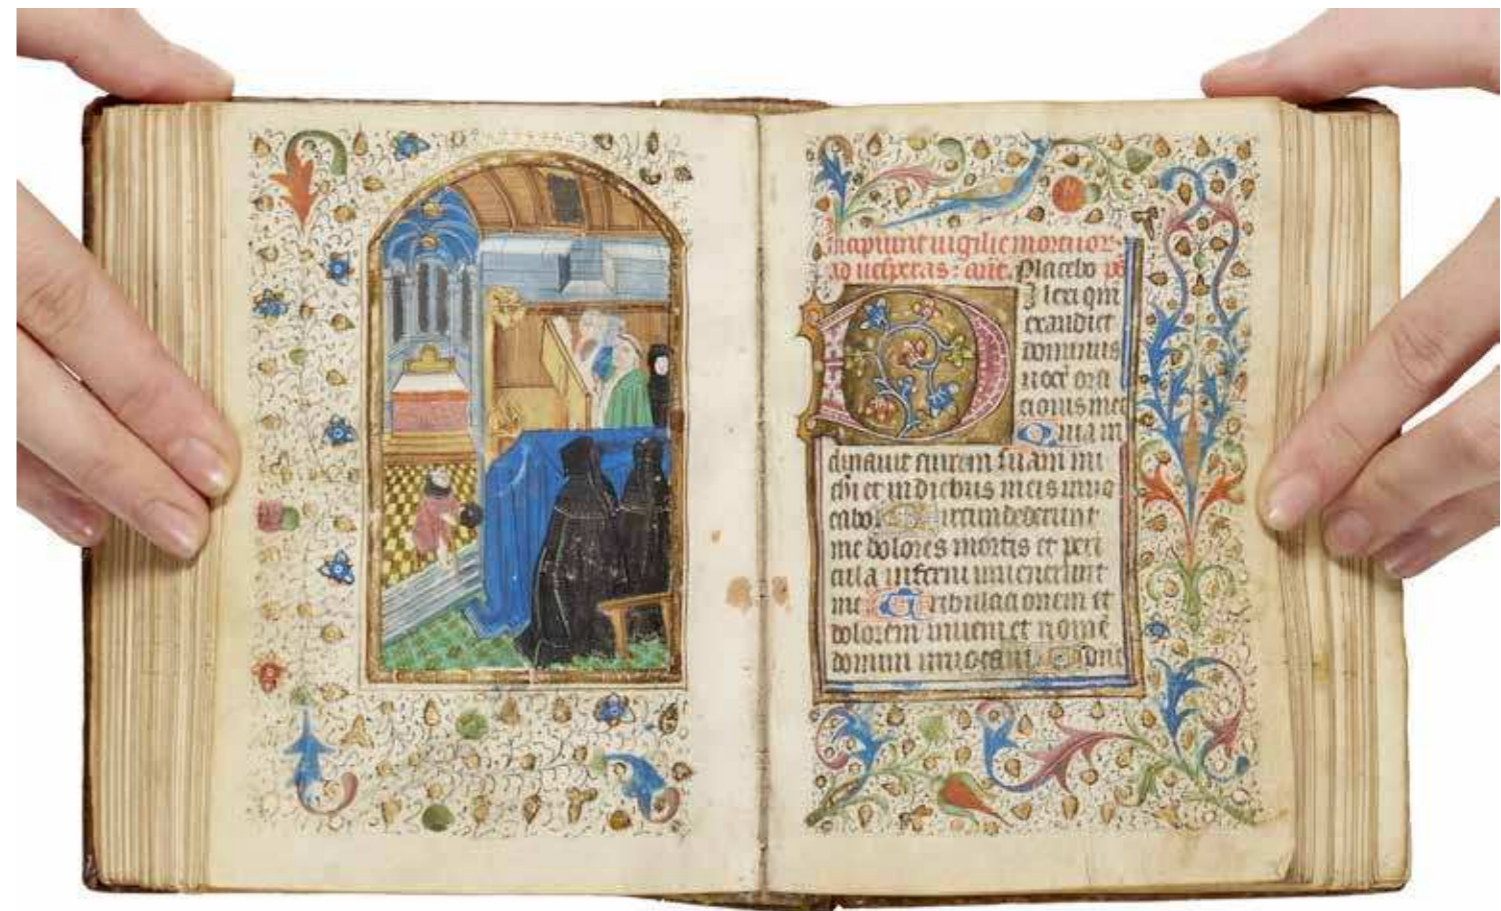 Incipiunt uigilie mortuor
ad uesperas: ant. Placebo ps
Dilexi qm
exaudiet
dominus
uocē ora
cionis mee
Quia in
clinauit aurem suam mi
chi et in diebus meis inuo
cabo Circumdederunt
me dolores mortis et peri
cula inferni inuenerunt
me Tribulacionem et
dolorem inueni et nomē
domini inuocaui O dne